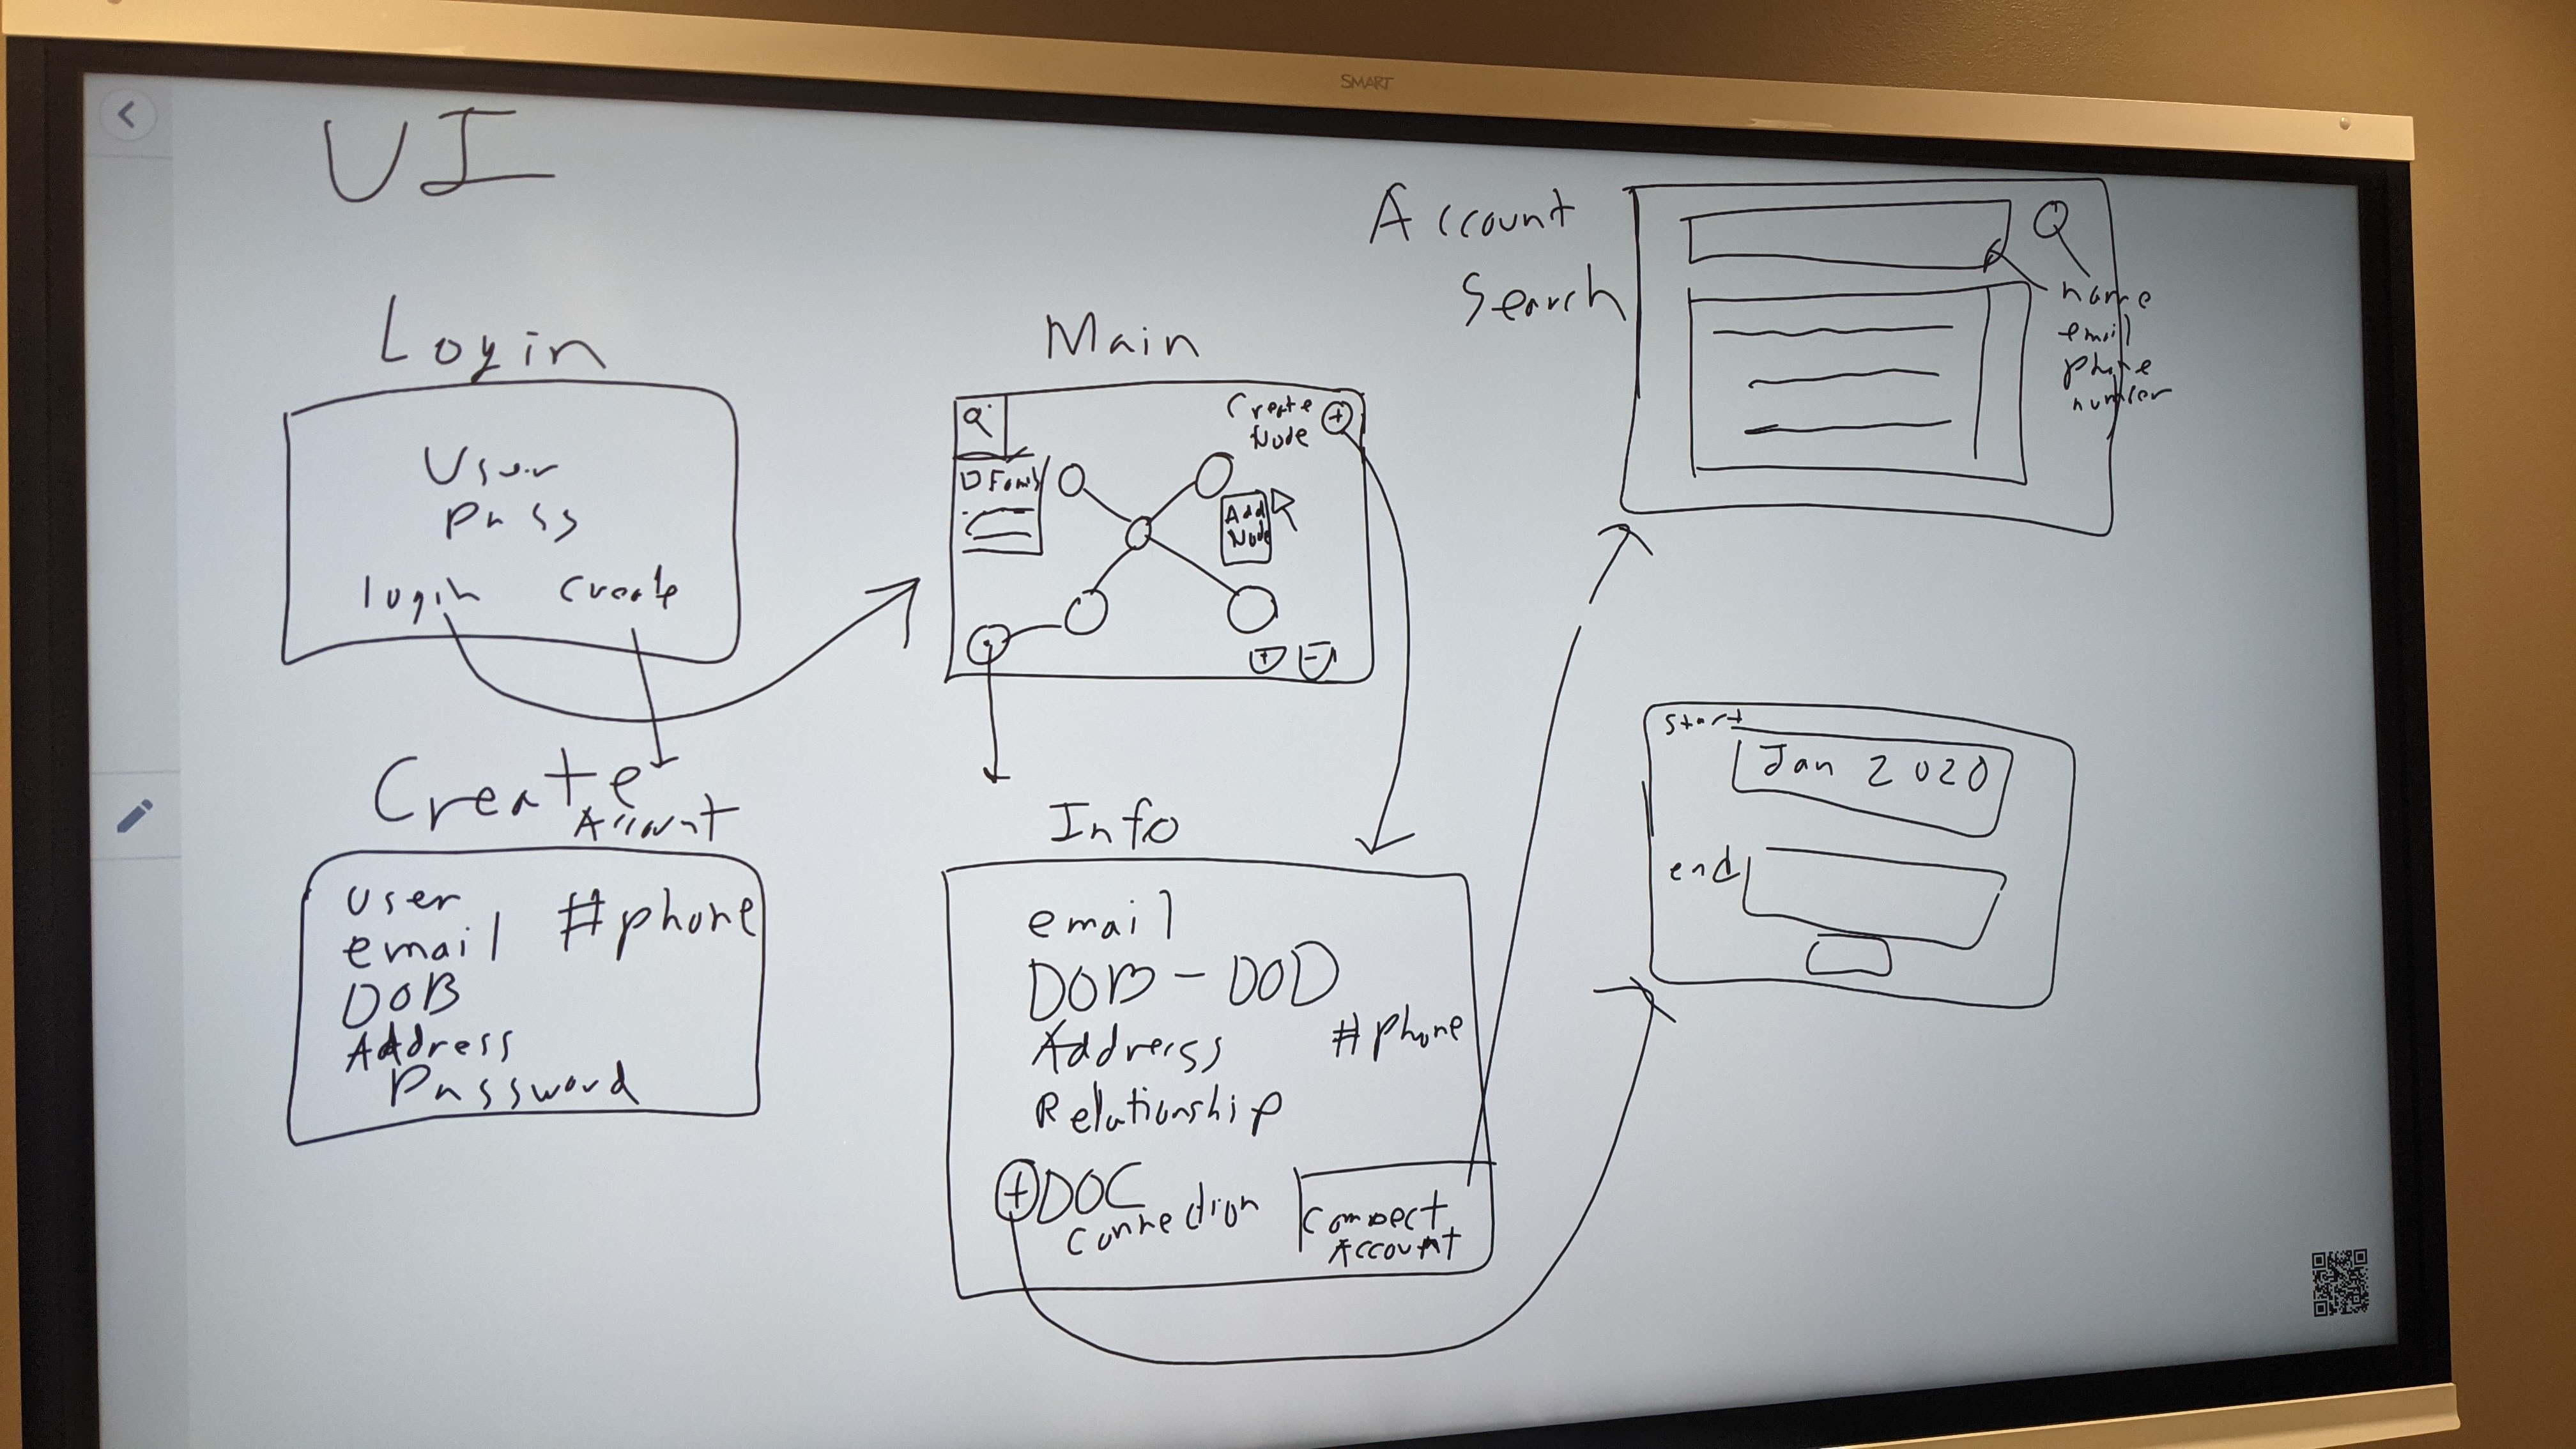 SMART
UI
Login
User
Pass
login create
Create
Account
user
email #phone
DOB
Address
Password
Main
Create
Node
Add
Node
Info
email
DOB - DOD
Address #phone
Relationship
DOC
Connection
Connect
Account
Account
Search
name
email
phone
number
start
Jan 2020
end